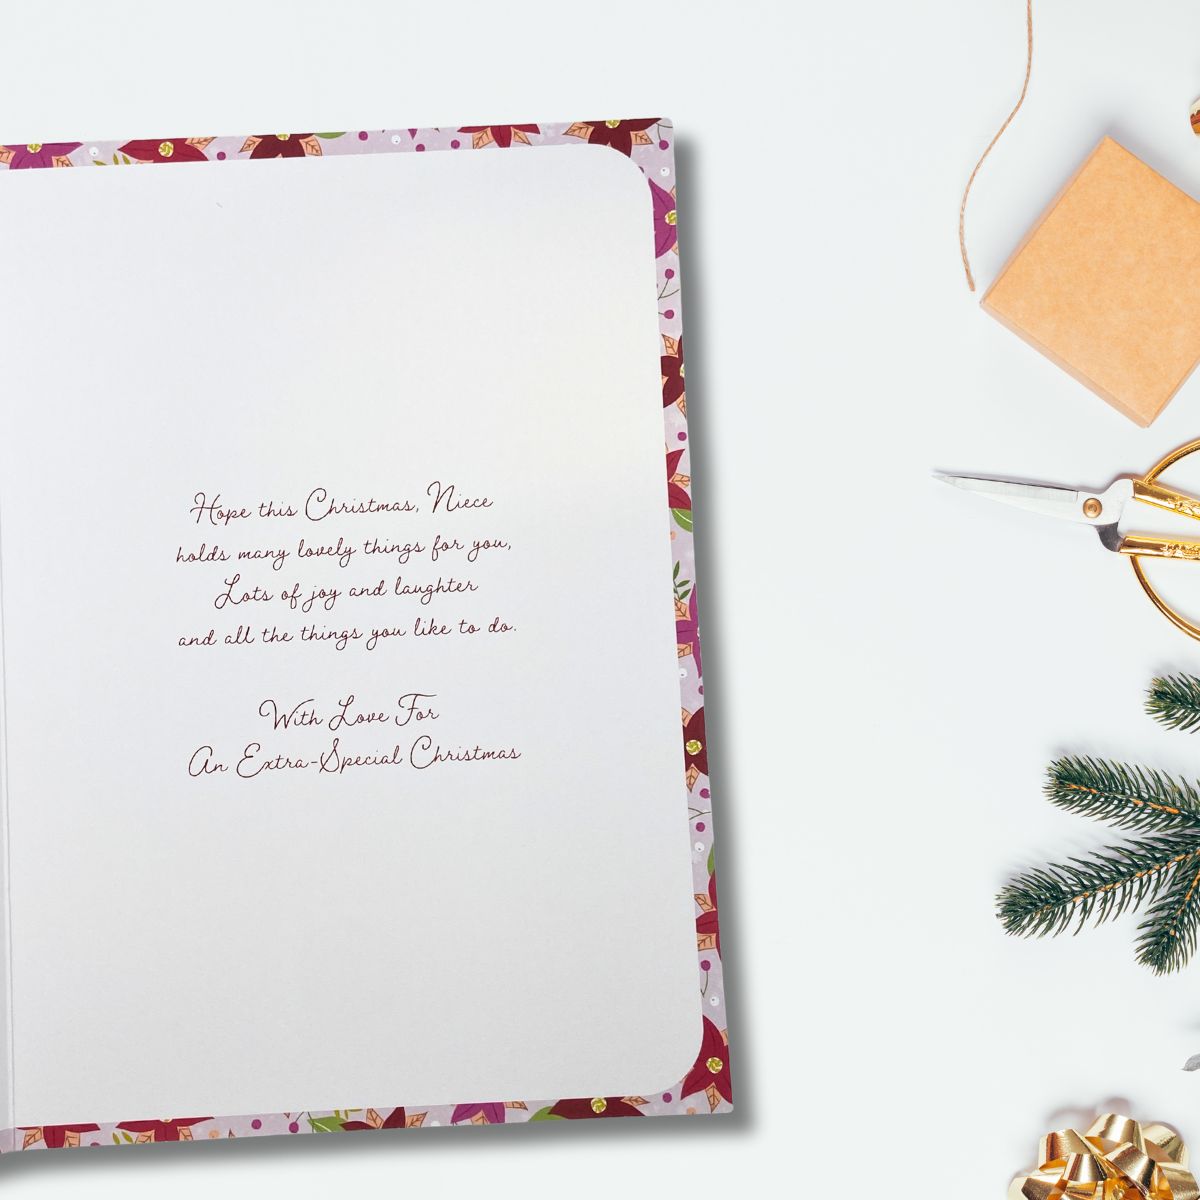 Hope this Christmas, Niece
holds many lovely things for you,
Lots of joy and laughter
and all the things you like to do.
With Love For
An Extra-Special Christmas